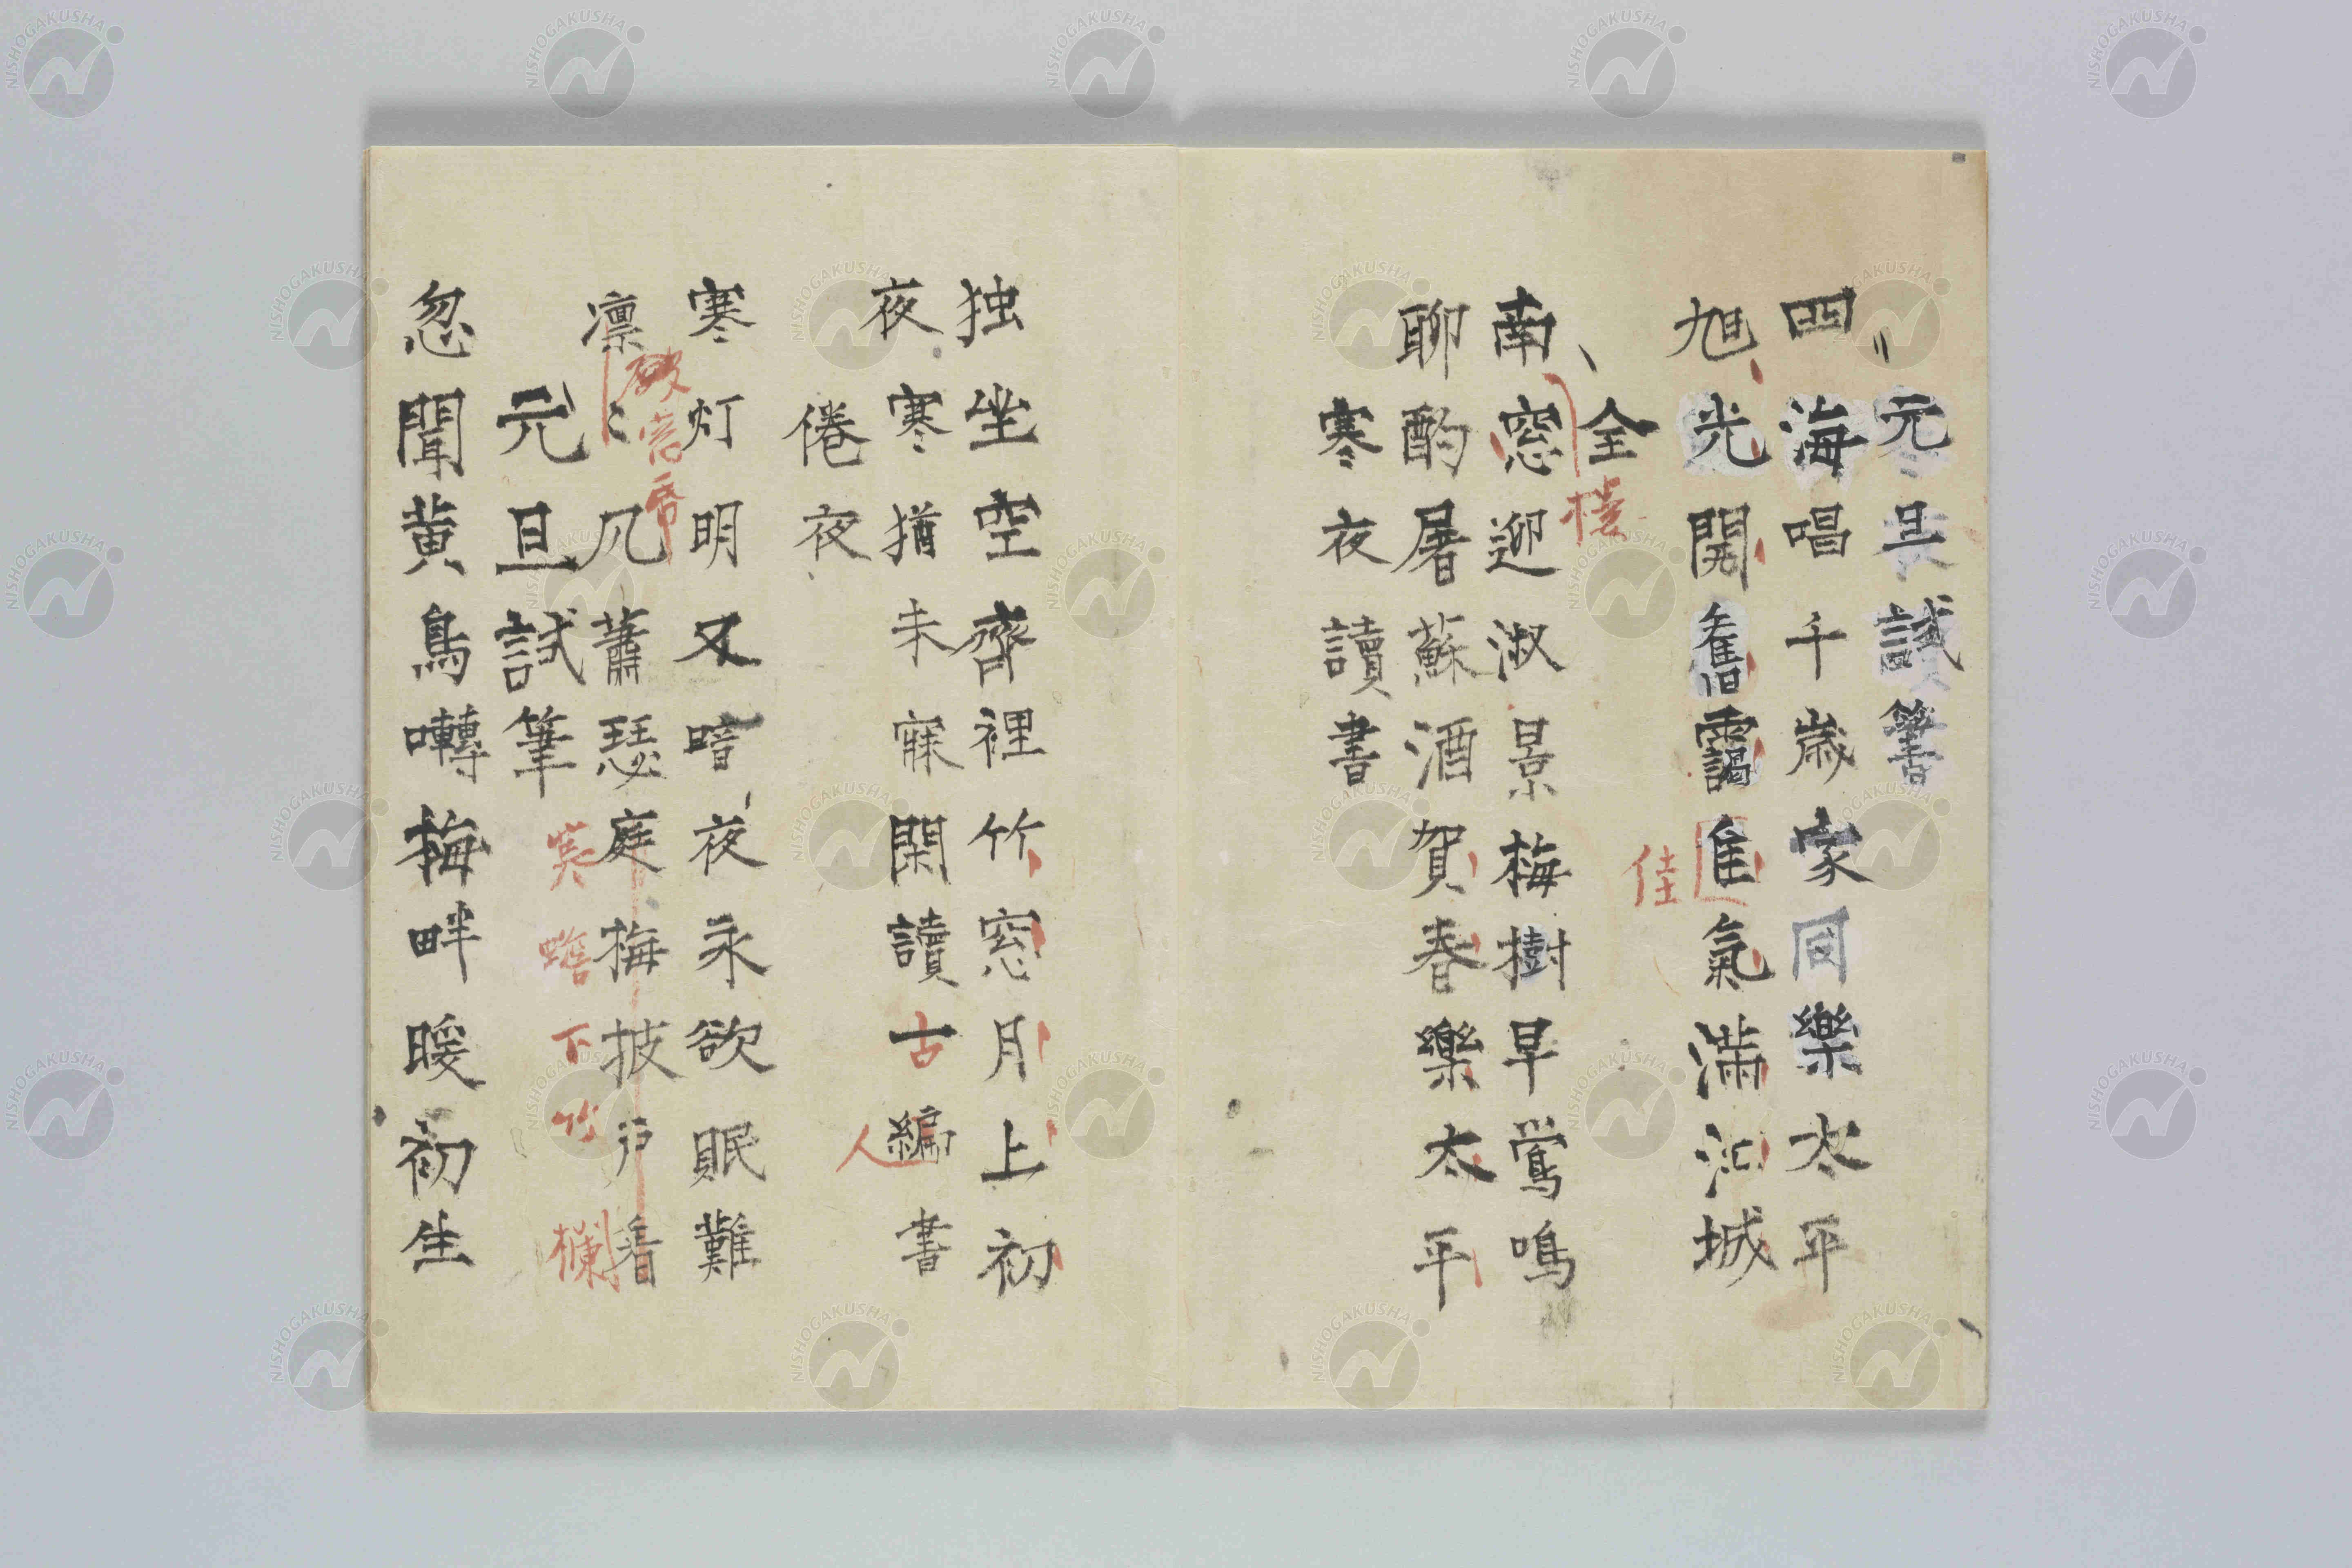 元旦試筆
四海唱千歳家同樂太平
旭光開舊靄隹氣滿江城
佳
仝
南窓迎淑景梅樹早鶯鳴
樓
聊酌屠蘇酒賀春樂太平
寒夜讀書
独坐空齊裡竹窓月上初
夜寒猶未寐閑讀古編書
人
倦夜
寒灯明又暗夜永欲眠難
凛〻風蕭瑟庭梅披戸看
下竹欄
元旦試筆
忽聞黄鳥囀梅畔暖初生
NISHOGAKUSHA